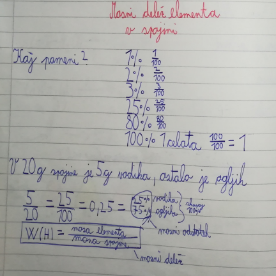 Masni delež elementa
v spojini
Kaj pomeni?
1% 1/100
2% 2/100
3% 3/100
25% 25/100
80% 80/100
100% 1 celota 100/100 = 1
V 20g spojine je 5g vodika, ostalo je ogljik
5/20 = 25/100 = 0,25 = 25% vodika
75% ogljika
W(H) = masa elementa / masa spojine
masni odstotek
masni delež